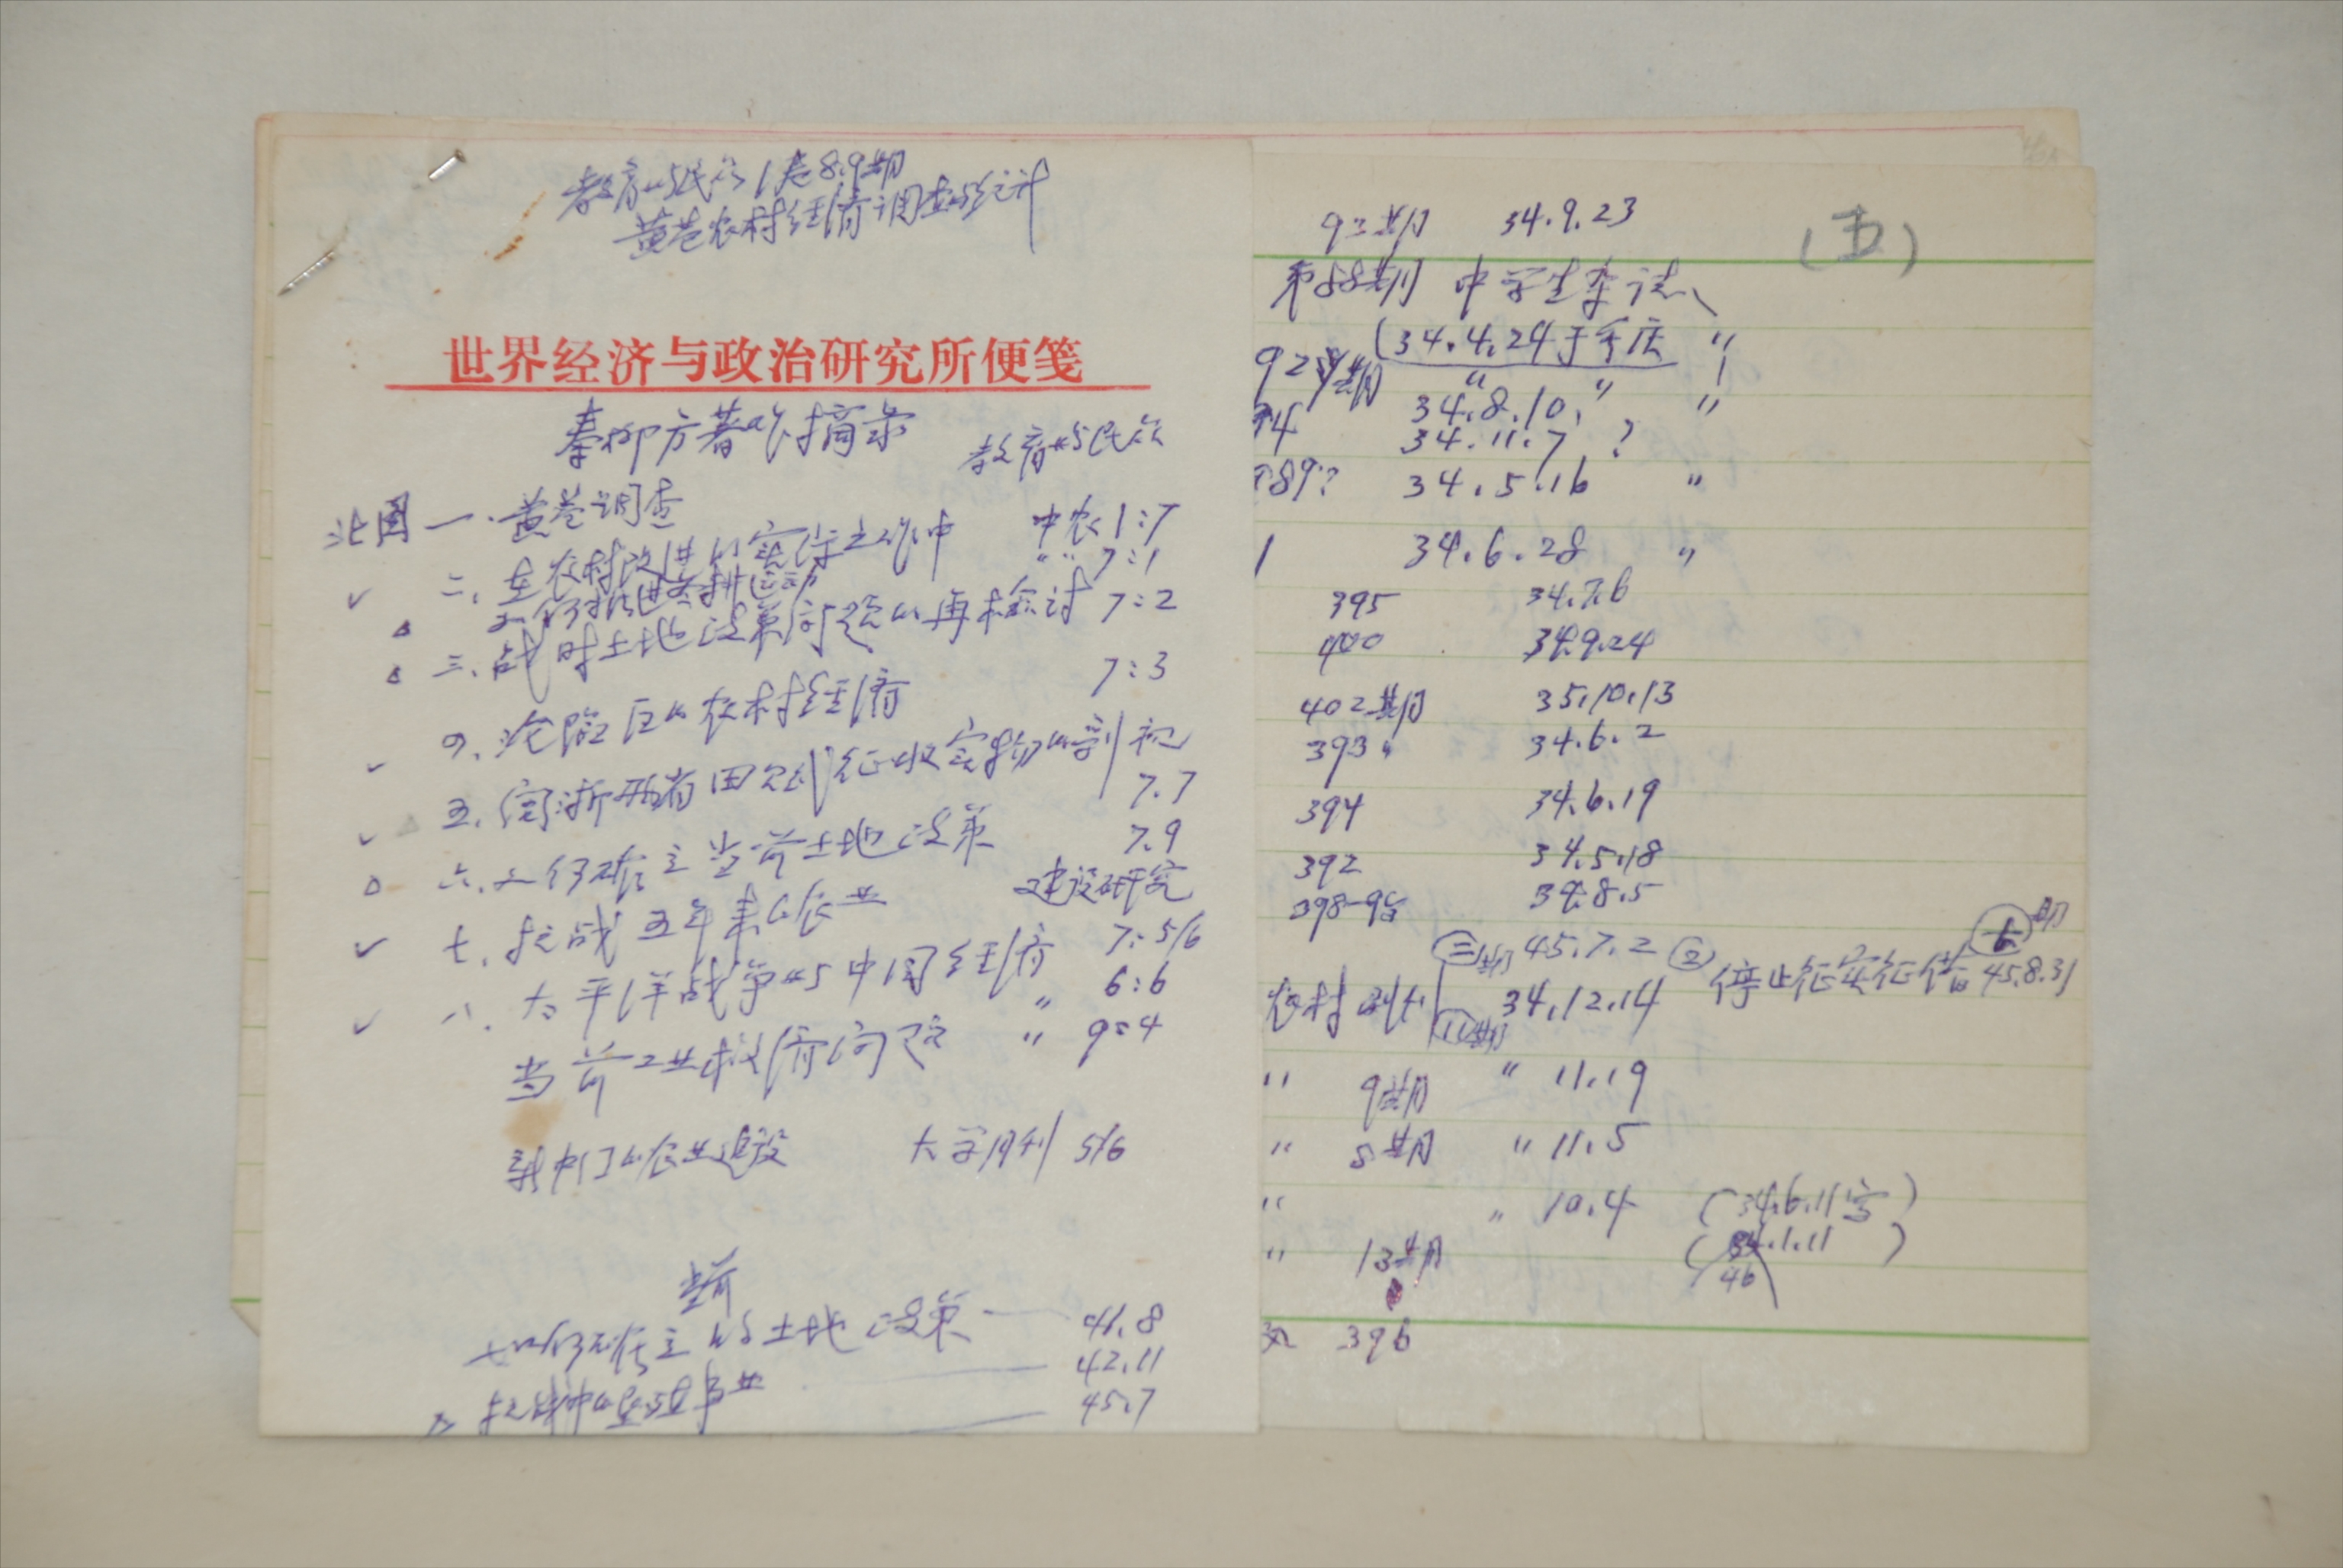 教育与民众1卷8.9期
黄巷农村经济调查统计
世界经济与政治研究所便笺
秦柳方著作摘录
教育与民众
北图 一、黄巷调查
二、在农村改进的实际工作中 中农1:7
如何推进冬耕运动 " " 7:1
三、战时土地政策问题的再检讨 7:2
四、沦陷区的农村经济 7:3
五、闽浙两省田赋征收实物的 7.7
六、如何确立当前土地政策 7.9
七、抗战五年来的农业 建设研究
八、太平洋战争与中国经济 7:5/6
" 6:6
当前工业救济问题 " 9:4
新中国的农业建设 大学月刊 5/6
当前
如何确立的土地政策 — 41.8
42.11
抗战中的事业
45.7
(五)
93期 34.9.23
第88期 中学生杂志
(34.4.24于重庆 "
92期 34.8.10. " "
94 34.11.7 ?
89? 34.5.16 "
1 34.6.28 "
395 34.7.6
400 34.9.24
402期 35.10.13
393 " 34.6.2
394 34.6.19
392 34.5.18
398-99 34.8.5
三期 45.7.2 ② 停止征实征借 45.8.31 6期
农村副刊 11期 34.12.14
" 9期 " 11.19
" 8期 " 11.5
" " 10.4 (34.6.11写)
" 13期 (34.1.11)
46
396